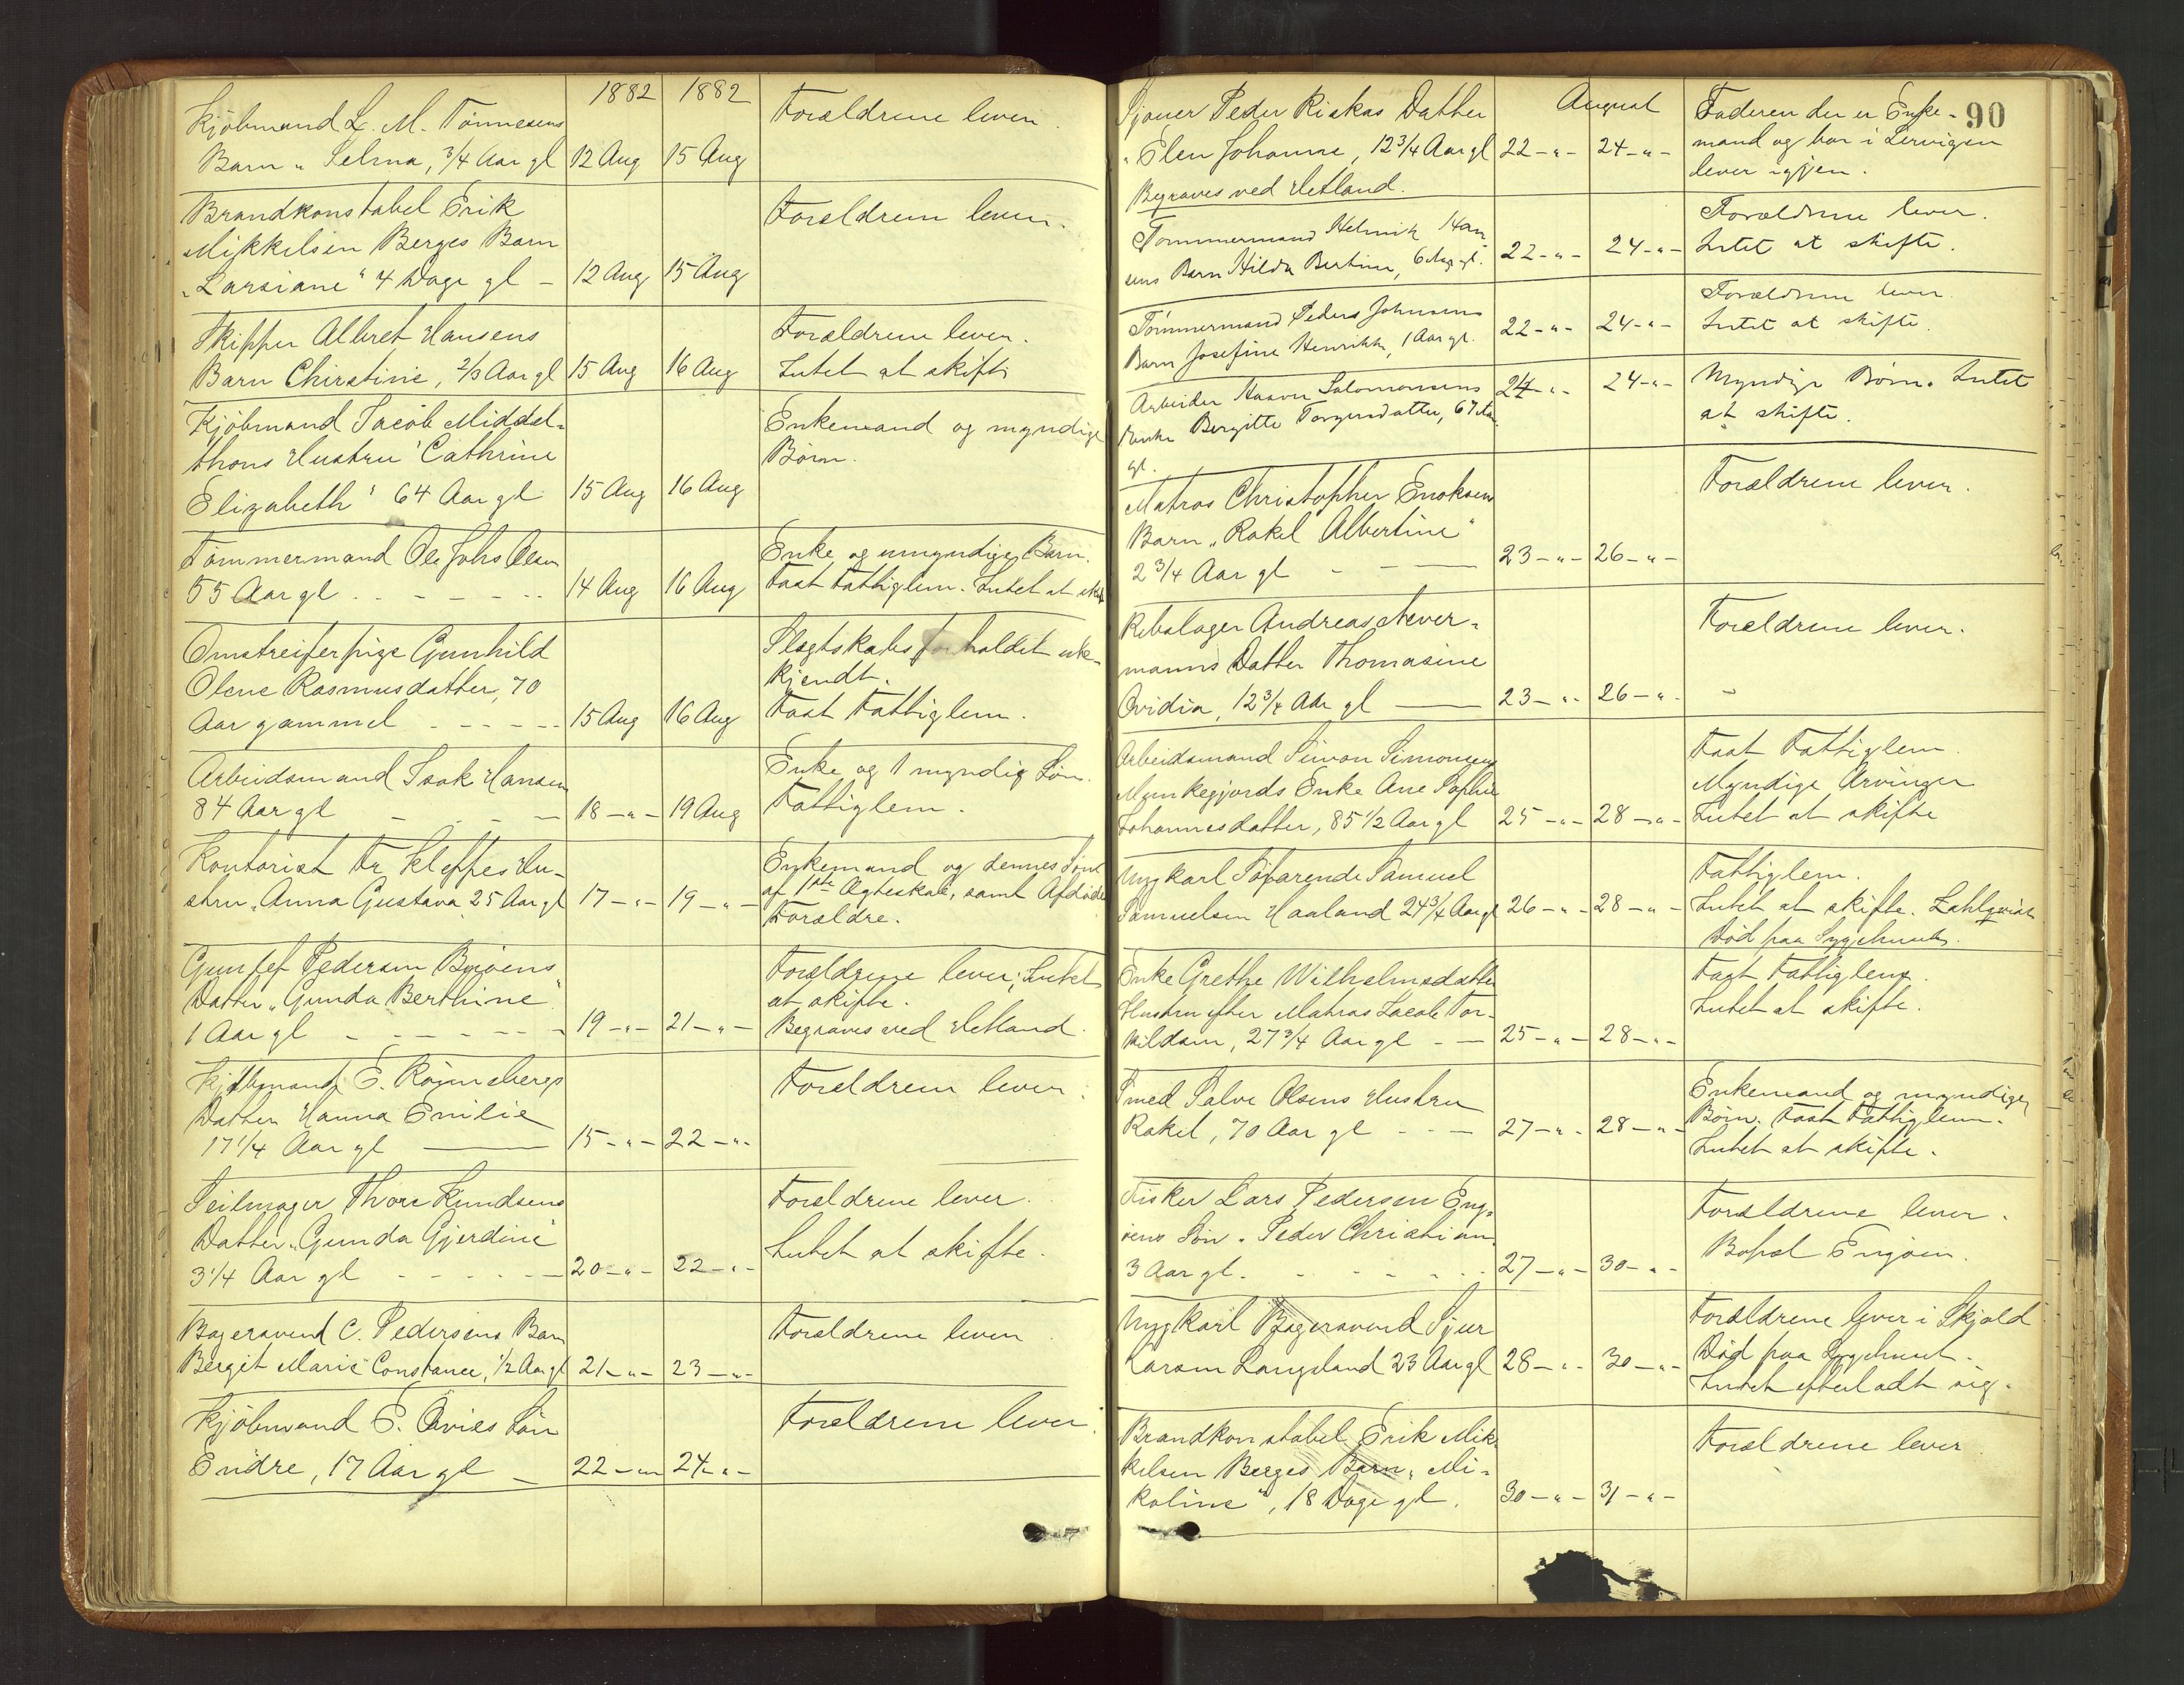 1882 1882
Kjøbmand L. M. Tønnesens Forældrene lever.
Barn „Selma, 3/4 Aar gl 12 Aug 15 Aug
Brandkonstabel Erik Forældrene lever.
Mikkelsen Berges Barn
„Larsiane“ 4 Dage gl – 12 Aug 15 Aug
Skipper Albret Hansens Forældrene lever.
Barn Chirstine, 2/3 Aar gl 15 Aug 16 Aug Intet at skifte
Kjøbmand Jacob Middel- Enkemand og myndige
thons Hustru 'Cathrine Børn.
Elizabeth' 64 Aar gl 15 Aug 16 Aug
Tømmermand Ole Johs Olsen Enke og umyndige Børn.
55 Aar gl 14 Aug 16 Aug Fast Fattiglem. Intet at skift
Omstreiferpige Gunhild Slægtskabsforholdet ube-
Olene Rasmusdatter, 70 kjendt.
Aar gammel 15 Aug 16 Aug Fast Fattiglem.
Arbeidsmand Isak Hansen Enke og 1 myndig Søn.
84 Aar gl 18 –"– 19 Aug Fattiglem.
Kontorist Fr. Kleppes Hu- Enkemand og dennes Sønn
stru „Anna Gustava 25 Aar gl 17 –"– 19 –"– af 1ste Ægteskab, samt Afdødes
Forældre.
Gunlef Pedersen Forældrene lever; Intet
Datter „Gunda Berthine“ at skifte.
1 Aar gl 19 –"– 21 –"– Begraves ved Hetland.
Kjøbmand E. Rønnebergs Forældrene lever.
Datter Hanna Emilie
17 1/4 Aar gl 15 –"– 22 –"–
Seilmager Thore Knudsens Forældrene lever.
Datter „Gunda Gjerdine“
3 1/4 Aar gl 20 –"– 22 –"– Intet at skifte.
Bagersvend C. Pedersens Barn Forældrene lever
Bergit Marie Constance, 1/2 Aar gl 21 –"– 23 –"–
Kjøbmand E. Søn Forældrene lever
Endre, 17 Aar gl – 22 –"– 24 –"–
90
August
Sjouer Peder Riskas Datter Faderen der er Enke-
„Elen Johanne, 12 3/4 Aar gl 22 –"– 24 –"– mand og bor i Lervigen
Begraves ved Hetland. lever igjen.
Tømmermand Helmik Han Forældrene lever.
sens Barn Hilda Bertine, 6 gl. 22 –"– 24 –"– Intet at skifte.
Tømmermand Peder Johnsens Forældrene lever
Barn Josefine Henrikke, 1 Aar gl. 22 –"– 24 –"– Intet at skifte.
Arbeider Haaver Salomonsens 24 –"– 24 –"– Myndige Børn. Intet
Enke Bergitte Torgersdatter, 67 Aar at skifte.
gl.
Matros Christopher Enoksens Forældrene lever.
Barn „Rakel Albertine“
2 3/4 Aar gl 23 –"– 26 –"–
Rebslager Andreas Never- Forældrene lever.
manns Datter Thomasine
Ovidia, 12 3/4 Aar gl 23 –"– 26 –"–
Arbeidsmand Simon Simonsen Fast Fattiglem.
Munkegjords Enke Ane Sophie Myndige Arvinger
Johannesdatter, 85 1/2 Aar gl 25 –"– 28 –"– Intet at skifte
Ungkarl Søfarende Samuel Fattiglem.
Samuelsen Haaland 24 3/4 Aar gl 26 –"– 28 –"– Intet at skifte.
Død paa Sygehuset.
Enke Grethe Wilhelmsdatter Fast Fattiglem.
Hustru efter Matros Jacob Tor- Intet at skifte.
kildsen, 27 3/4 Aar gl 25 –"– 28 –"–
Smed Salve Olsens Hustru Enkemand og myndige
Rakel, 70 Aar gl 27 –"– 28 –"– Børn. Fast Fattiglem.
Intet at skifte.
Fisker Lars Pedersen Eng- Forældrene lever.
øens Søn „Peder Christian Bopæl Engøen.
3 Aar gl. 27 –"– 30 –"–
Ungkarl Bagersvend Sjur Forældrene lever i Skjold
Larsen Langeland 23 Aar gl 28 –"– 30 –"– Død paa Sygehuset.
Intet efterladt sig.
Brandkonstabel Erik Mik- Forældrene lever
kelsen Berges Barn „Mi-
koline“, 18 Dage gl. 30 –"– 31 –"–